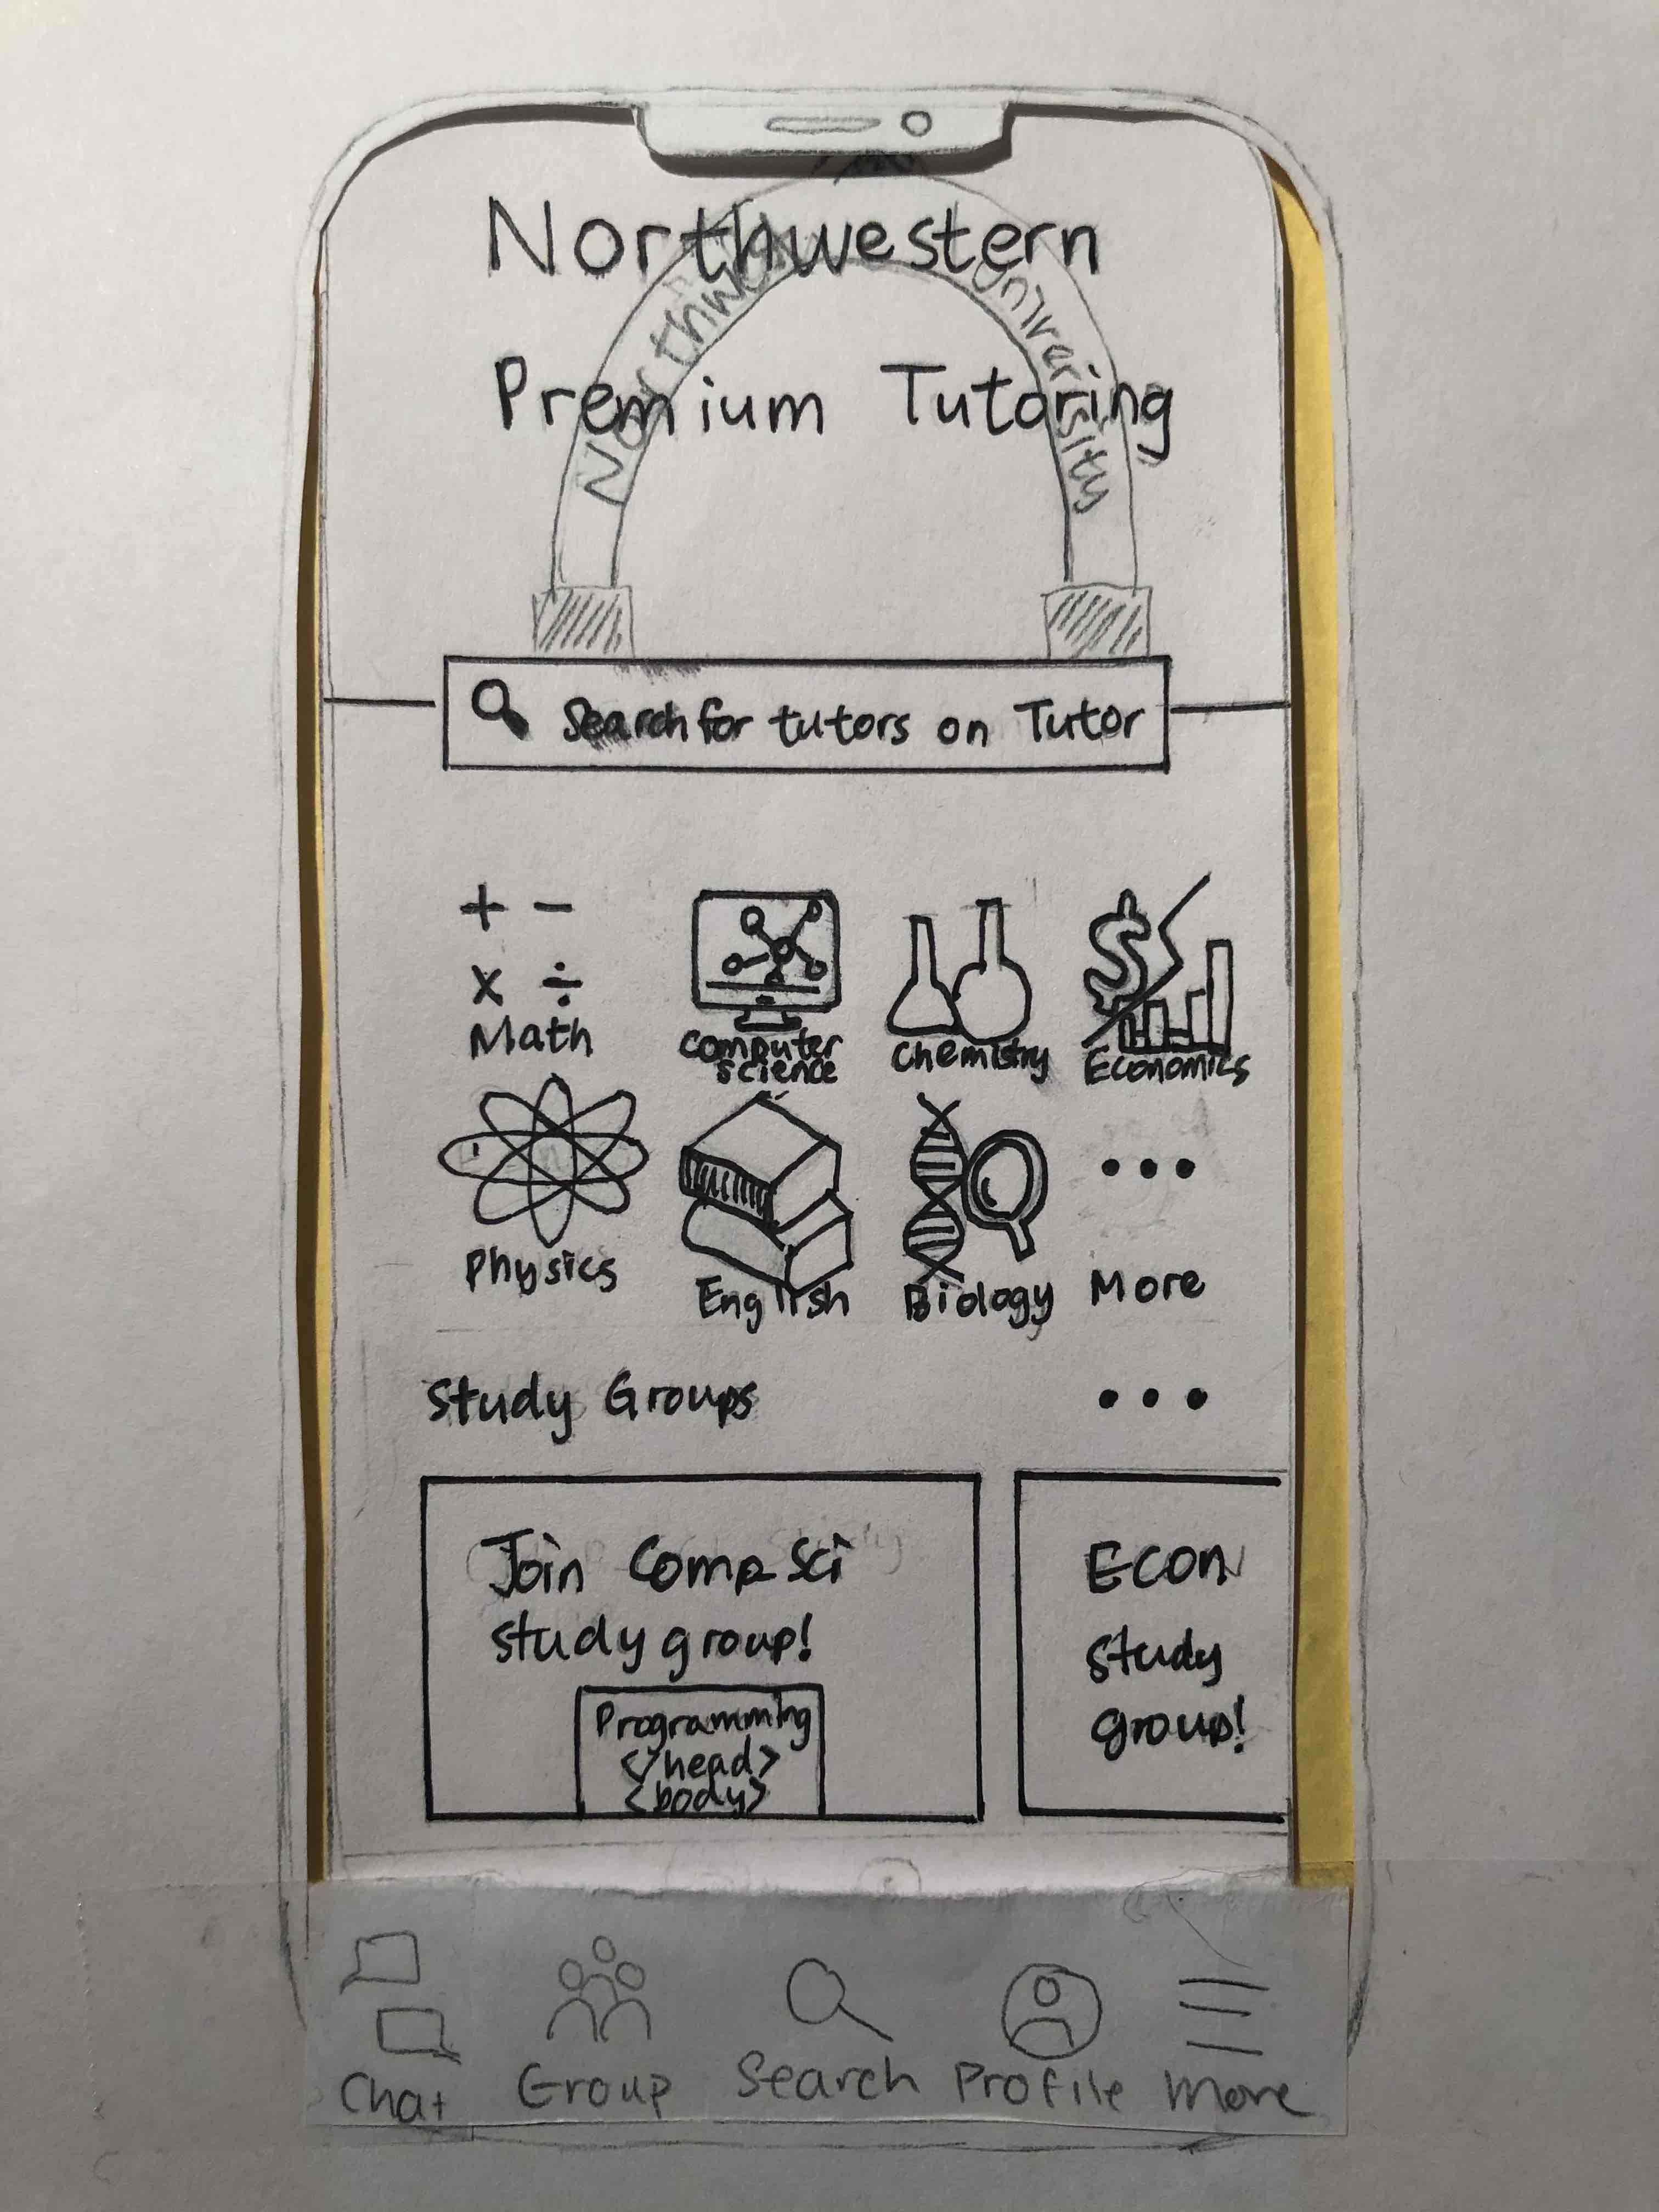 Northwestern
Premium Tutoring
Northw
University
Search for tutors on Tutor
+ -
x ÷
Math
Computer
Science
Chemistry
$
Economics
Physics
English
Biology
...
More
Study Groups
...
Join Comp Sci
study group!
Programming
</head>
<body>
Econ
Study
group!
Chat
Group
Search
Profile
More